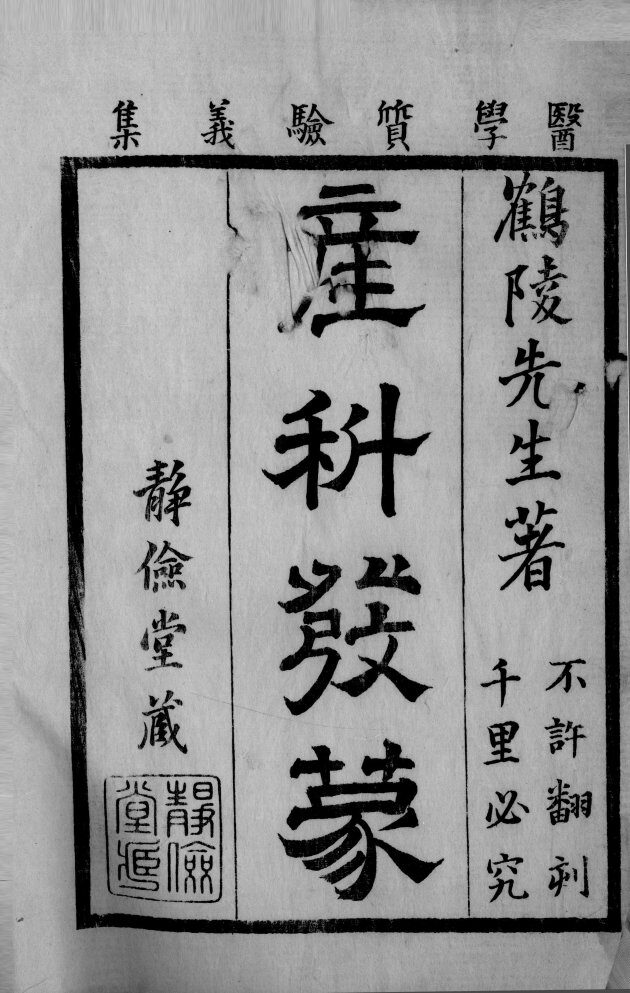 醫學質驗義集
鶴陵先生著
不許翻刻
千里必究
産科發蒙
靜儉堂藏
靜儉
堂印